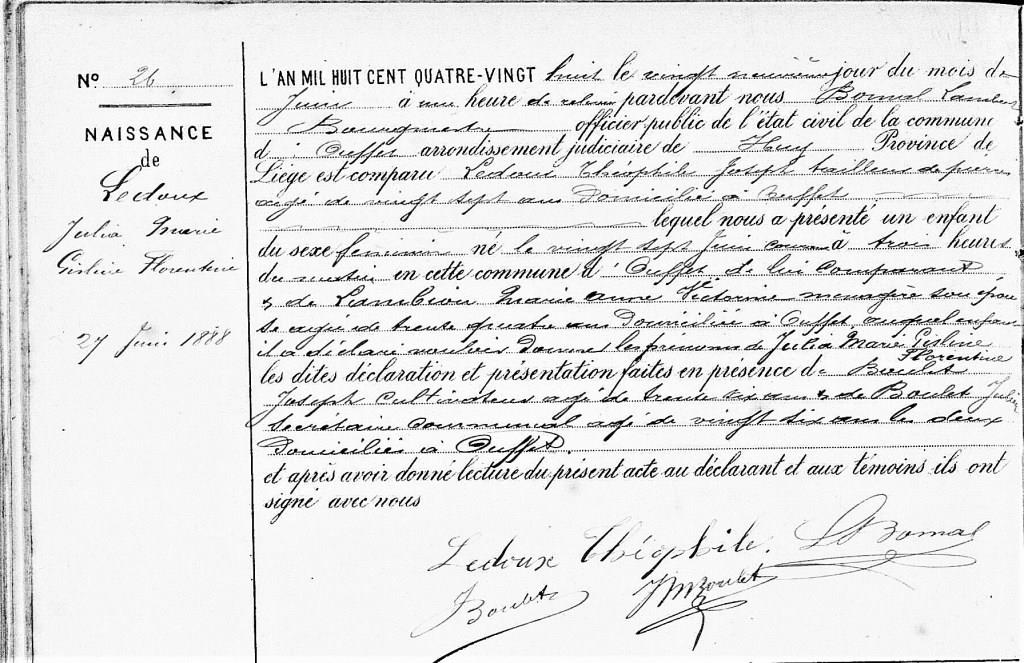 N° 26
NAISSANCE
de
Ledoux
Julia Marie
Gisline Florentine
27 Juin 1888
L'AN MIL HUIT CENT QUATRE-VINGT huit le vingt neuvième jour du mois de
Juin à une heure de relevée pardevant nous Bomal Lambert
Bourgmestre officier public de l'état civil de la commune
d'Ouffet arrondissement judiciaire de Huy Province de
Liége est comparu Ledoux Théophile Joseph tailleur de pierres
agé de vingt sept ans domicilié à Ouffet
lequel nous a présenté un enfant
du sexe féminin né le vingt sept Juin courant à trois heures
du matin en cette commune d'Ouffet de lui comparant
& de Lambion Marie Anne Victorine menagère son épou
se agée de trente quatre ans domiciliée à Ouffet, auquel enfant
il a déclaré vouloir donner les prénoms de Julia Marie Gisline
Florentine
les dites déclaration et présentation faites en présence de Boulet
Joseph cultivateur agé de trente six ans & de Boulet Julien
secrétaire communal agé de vingt six ans les deux
domiciliés à Ouffet.
et après avoir donné lecture du présent acte au déclarant et aux témoins ils ont
signé avec nous
Ledoux Théophile. L Bomal
Boulet Boulet